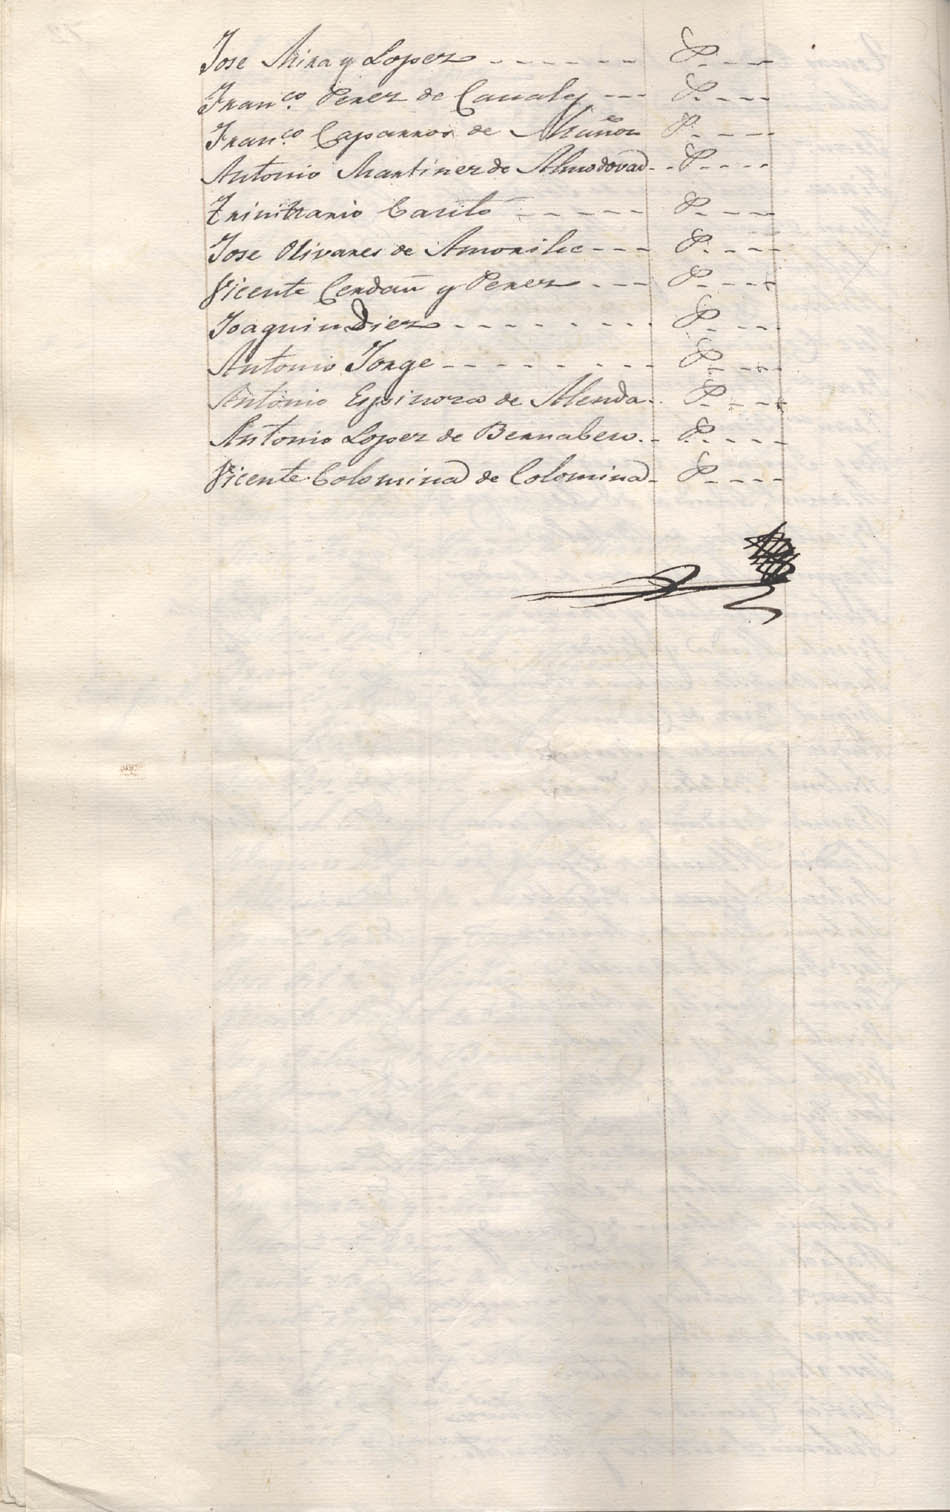 Jose Mira y Lopez - - - - - - - P. - - -
Fran.co Perez de Canaly - - - P. - - -
Fran.co Caparros de Mañon P. - - - -
Antonio Martinez de Almodovar - - P - - - -
Trinitrario Carilo - - - - - P. - - -
Jose Olivares de Amorilec - - - P. - - -
Vicente Cerdañ y Perez - - - P. - - -
Joaquin Diez - - - - - - - - P. - - -
Antonio Jorge - - - - - - - - P. - - -
Antonio Espinoza de Alenda - P. - - -
Antonio Lopez de Bernabeu - - P. - - - -
Vicente Colomina de Colomina - P. - - - -